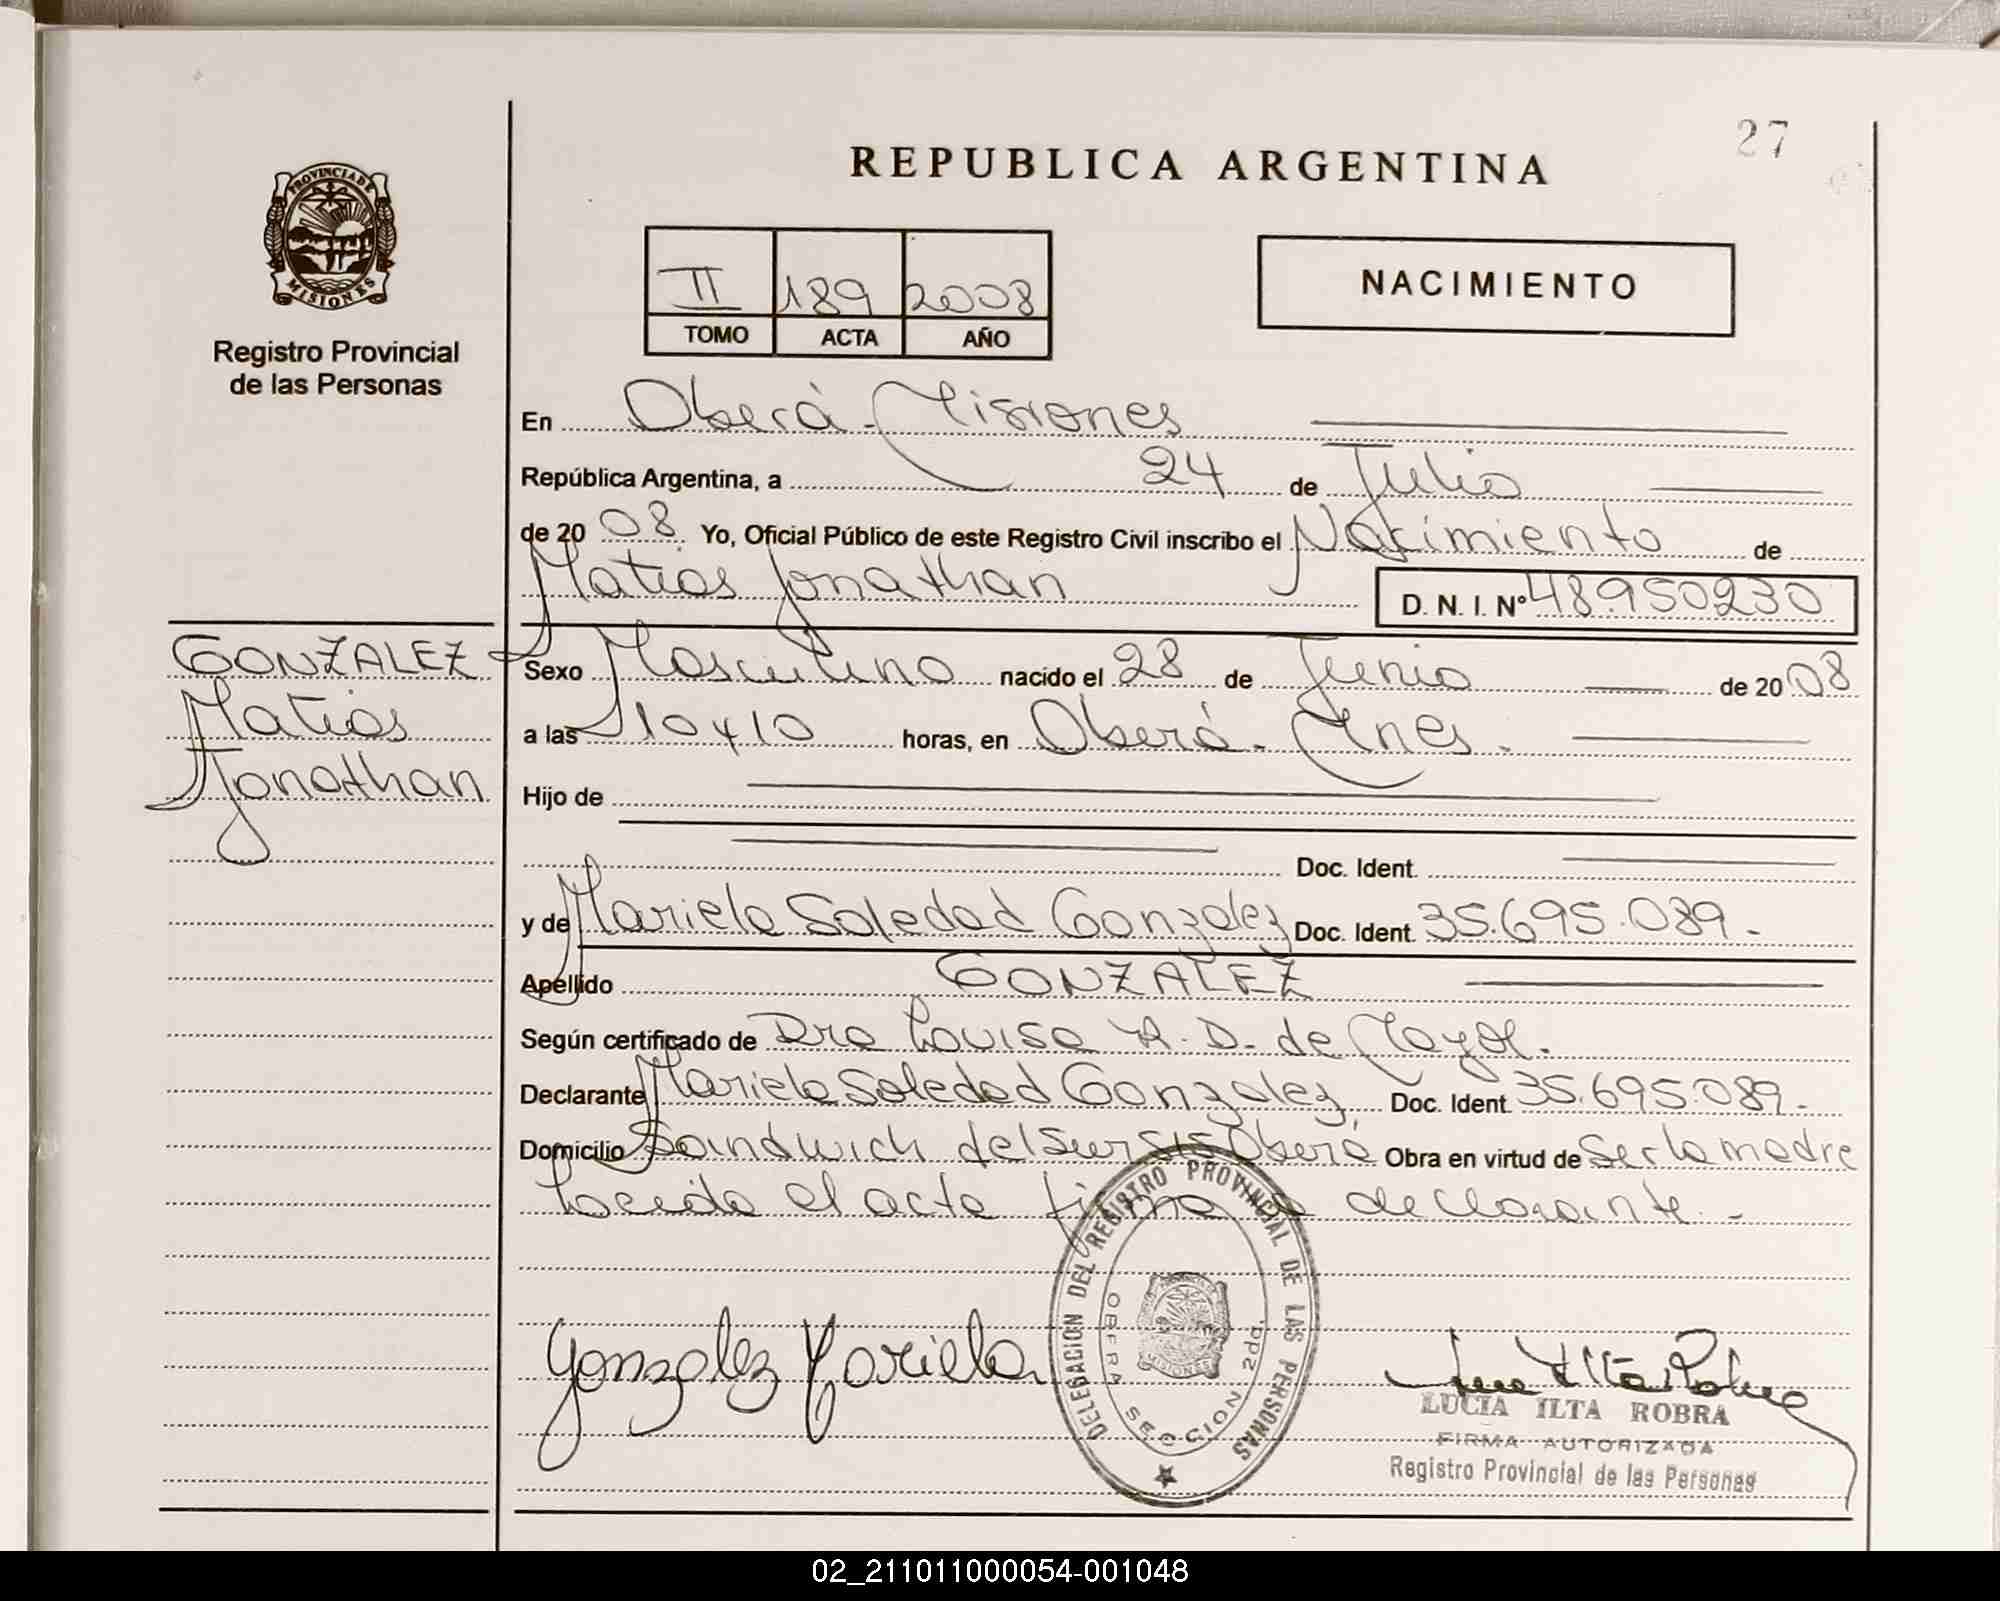 27
REPUBLICA ARGENTINA
PROVINCIA DE
MISIONES
Registro Provincial
de las Personas
II 189 2008
TOMO ACTA AÑO
NACIMIENTO
En Oberá - Misiones
República Argentina, a 24 de Julio
de 20 08. Yo, Oficial Público de este Registro Civil inscribo el Nacimiento de
Matias Jonathan D. N. I. Nº 48.950230
GONZALEZ
Matias
Jonathan
Sexo Masculino nacido el 28 de Junio de 20 08
a las 10 y 10 horas, en Oberá - Mnes.
Hijo de
Doc. Ident.
y de Mariela Soledad Gonzalez Doc. Ident. 35.695.089.-
Apellido GONZALEZ
Según certificado de Dra Louisa R. D. de Mayol.
Declarante Mariela Soledad Gonzalez Doc. Ident. 35.695.089.-
Domicilio Sandwich del Sur Oberá Obra en virtud de Ser la madre
Loeida el acta firma la declarante.-
DELEGACION DEL REGISTRO PROVINCIAL DE LAS PERSONAS
OBERA SECCION 2da.
MISIONES
Gonzalez Mariela
LUCIA ILTA ROBRA
FIRMA AUTORIZADA
Registro Provincial de las Personas
02_211011000054-001048